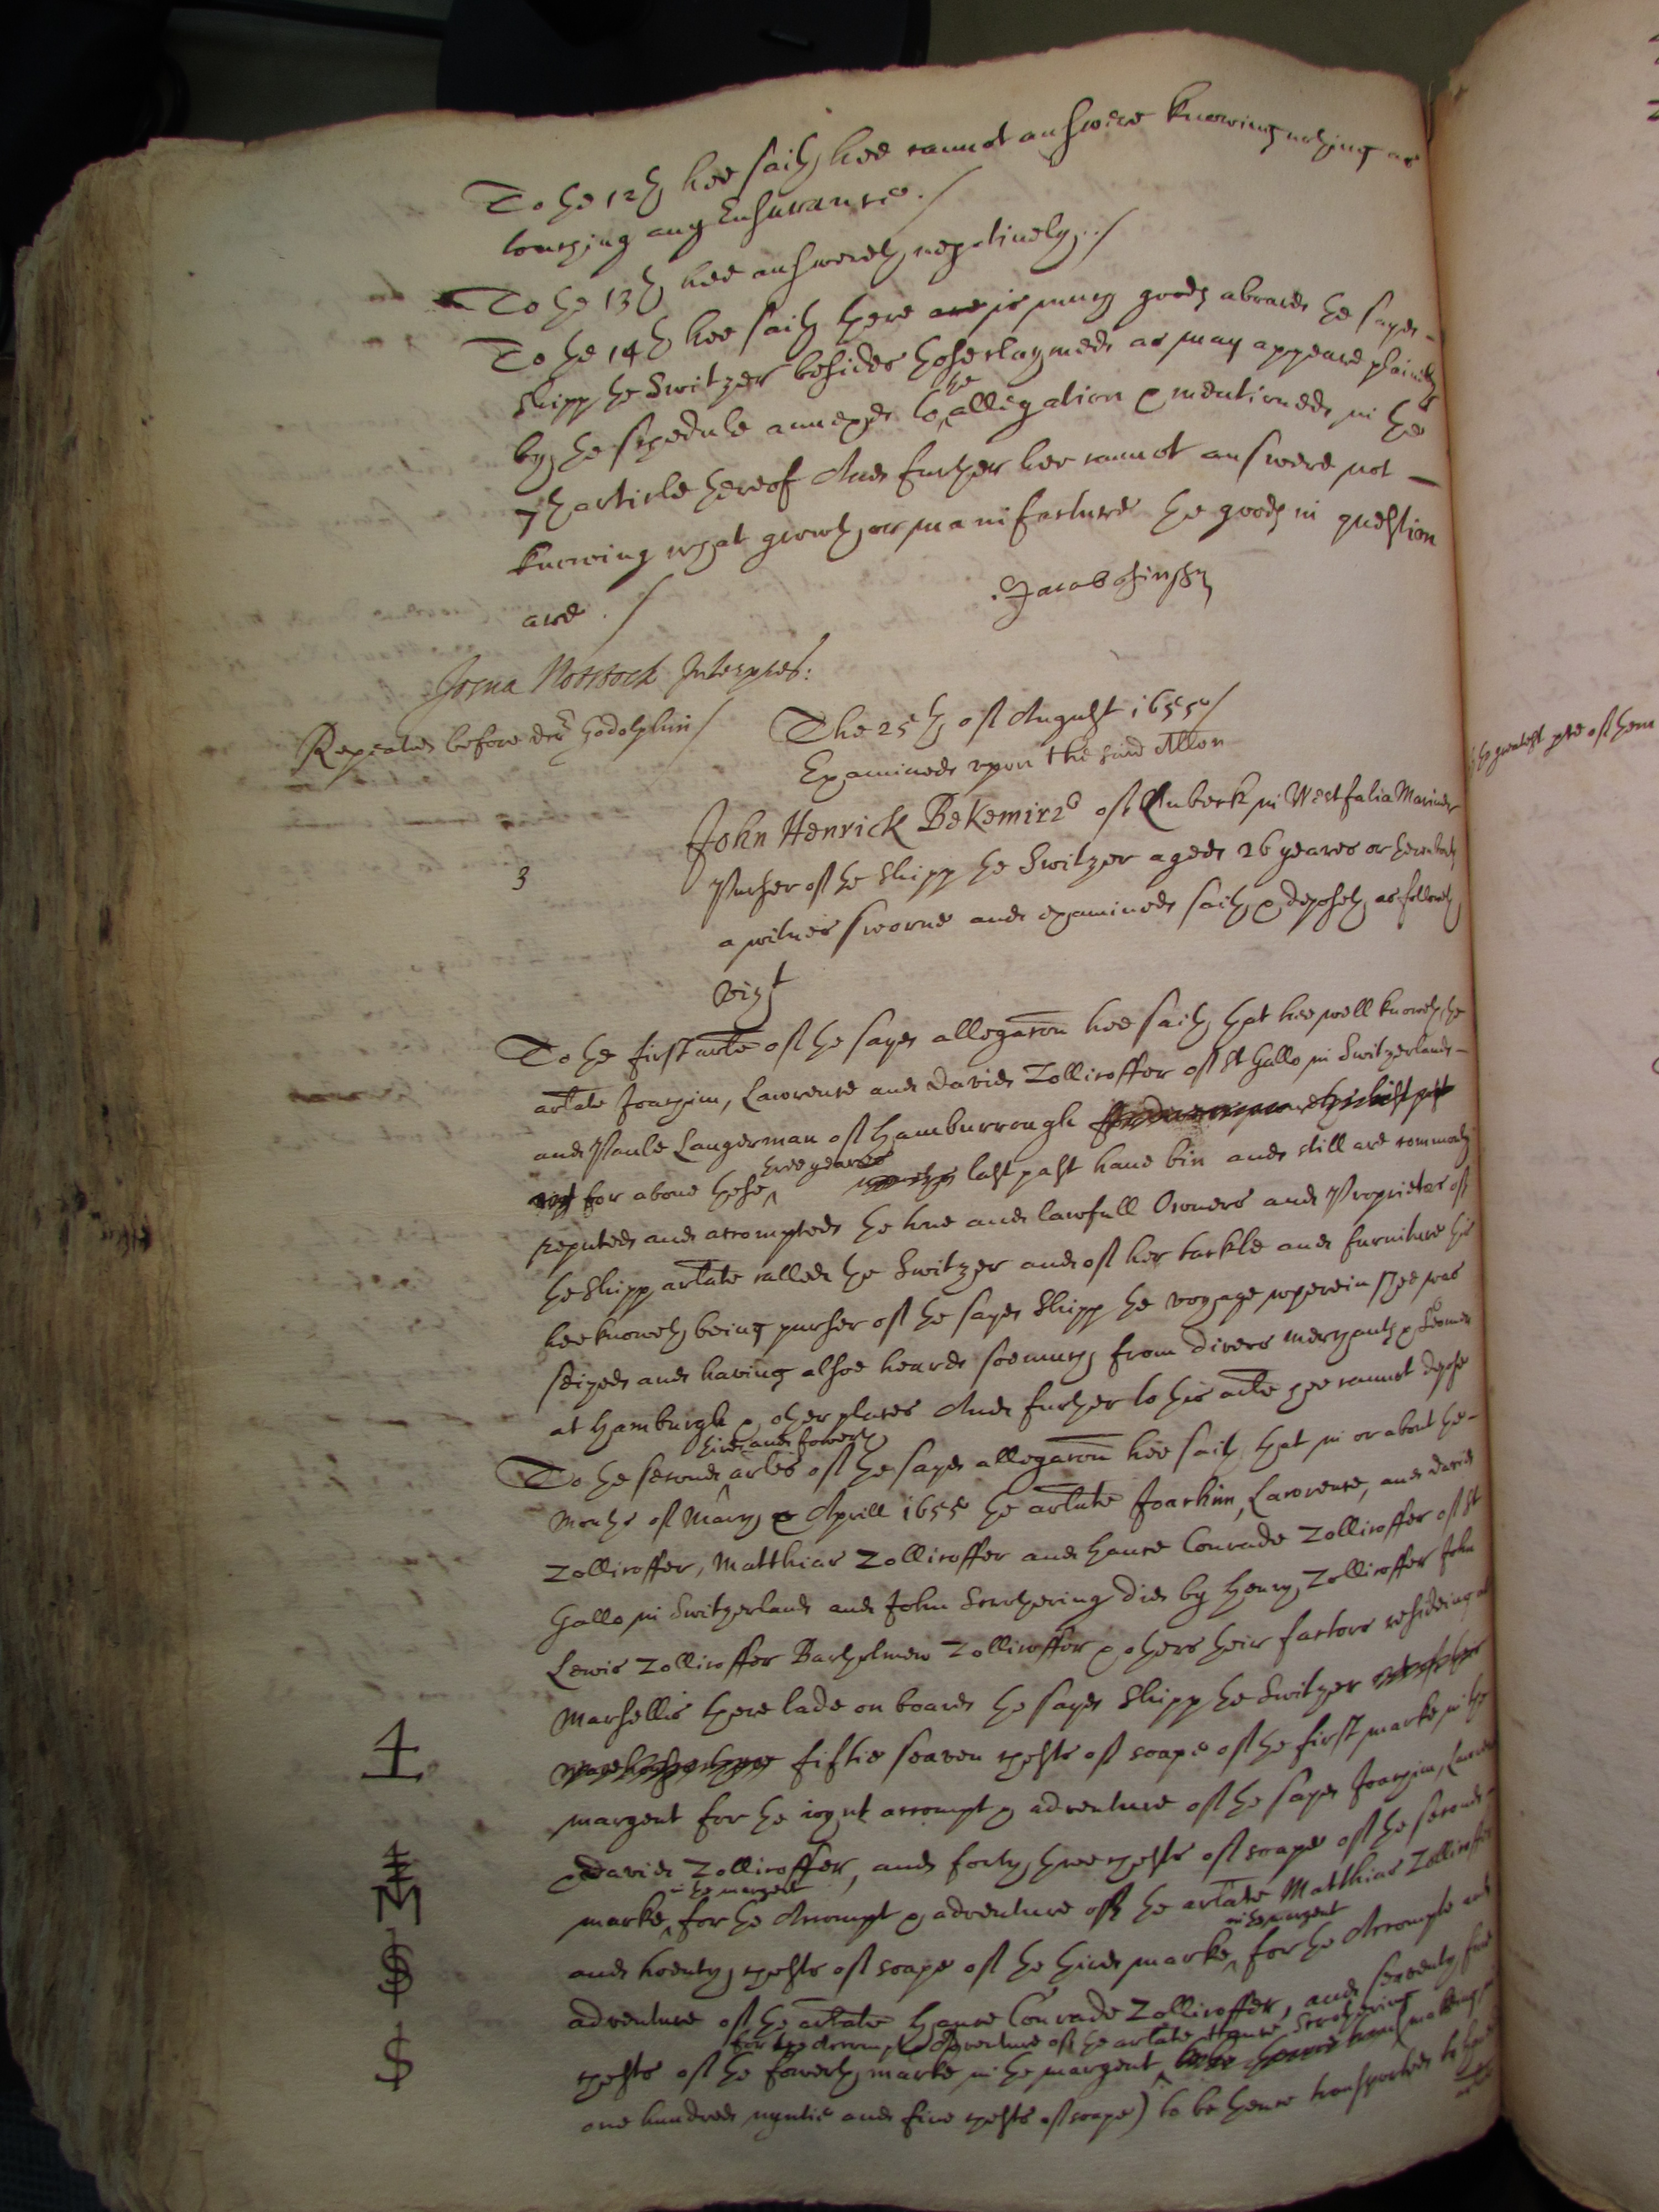 To the 12th hee saith hee cannot answere knowing nothing as
touching any Ensurance ./
To the 13th hee answereth negatively ./
To the 14th hee saith there are is much goods aboard the sayd
shipp the Switzer besides those claymed as may appeare plainly
by the schedule annexed to the allegation & mentioned in the
7th article thereof And further hee cannot answere not
knowing what growth or manifacture the goods in question
are ./
Josua Interpres:
Repeated before dr Godolphin /
The 25th of August 1655 /
Examined upon the said Allon
3
John Henrick Bekemire of Lubeck in Westfalia Mariner
Purser of the Shipp the Switzer aged 26 yeares or thereabouts
a witnes sworne and examined saith & deposeth as followeth
vizt
To the first arle of the sayd allegacon hee saith that hee well knoweth the
arlate Joachim, Lawrence and David Zollicoffer of St Gallo in Switzerland
and Paule Langerman of Hamburrough
for above these three yeares last past have bin and still are commonly
reputed and accompted the true and lawfull Owners and Proprietors of
the Shipp arlate called the Switzer and of her tackle and furniture this
hee knoweth being purser of the sayd Shipp the voyage wherein shee was
seized and having alsoe heard soe much from divers merchants &
at Hamburgh & other places And further to this arle hee cannot depose
To the second third and fowerth arles of the sayd allegacon hee saith that in or about the
Months of March & Aprill 1655 the arlate Joachim, Lawrence, and David
Zollicoffer, Matthias Zollicoffer and Hance Conrade Zollicoffer of St
Gallo in Switzerland and John Scrothering did by Henry Zollicoffer John
Lewis Zollicoffer Bartholmew Zollicoffer & others their factors resideing at
Marsellis there lade on board the sayd Shipp the Switzer
fiftie seaven chests of soape of the first marke in the
margent for the ioynt accompt & adventure of the sayd Joachim, Lawrence
& David Zollicoffer, and forty three chests of soape of the second
marke in the margent for the Accompt & adventure of the arlate Matthias Zollicoffer
and twenty chests of soape of the third marke in the margent for the Accompte and
adventure of the arlate Hance Conrade Zollicoffer, and seventy five
chests of the fowerth marke in the margent for the Accompt & adventure of the arlate Hance Scrothering (making
one hundred nyntie and five chests of soape) to be thence transported to
M
the greatest pte of them